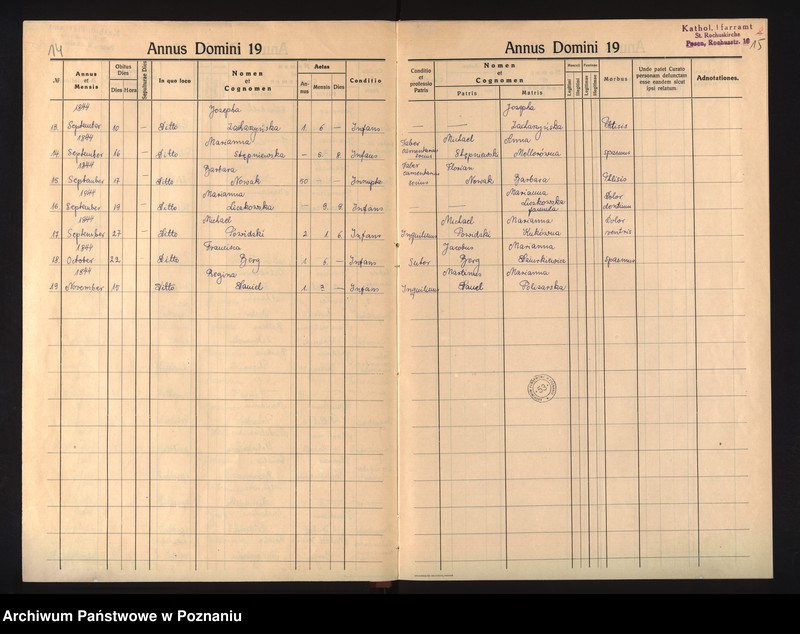 14
Annus Domini 19
№
Annus et Mensis
Obitus Dies
Dies Hora
Sepulturae Dies
In quo loco
Nomen et Cognomen
Aetas
Annus Mensis Dies
Conditio
1844 Josepha
13. September 10 — ditto Zacharyińska 1 6 — Infans
1844 Marianna
14. September 16 — ditto Stępniewska — 6 8 Infans
1844 Barbara
15. September 17 — ditto Nowak 50 — — Innupta
1844 Marianna
16. September 19 — ditto Liczkowska — 9 9 Infans
1844 Michael
17. September 27 — ditto Powidski 2 1 6 Infans
1844 Francisca
18. October 22 — ditto Berg 1 6 — Infans
1844 Regina
19. November 15 ditto Daniel 1 — Infans
Annus Domini 19
Kathol. Pfarramt
St. Rochuskirche
Posen, Rochusstr. 10
15
Conditio et professio Patris
Nomen et Cognomen
Patris
Matris
Legitimi
Illegitimi
Legitimae
Illegitimae
Morbus
Unde patet Curato personam defunctam esse eandem sicut ipsi relatum.
Adnotationes.
Josepha
— — Zacharyińska Phtisis
Faber Michael Anna
socius Stępniewski spasmus
Faber Florian
socius Nowak Barbara Phtisis
Marianna
— — Liczkowska Dolor
famula dentium
Michael Marianna Dolor
Inquilinus Powidski ventris
Jacobus Marianna
Sutor Berg spasmus
Martinus Marianna
Inquilinus Daniel
53
Archiwum Państwowe w Poznaniu